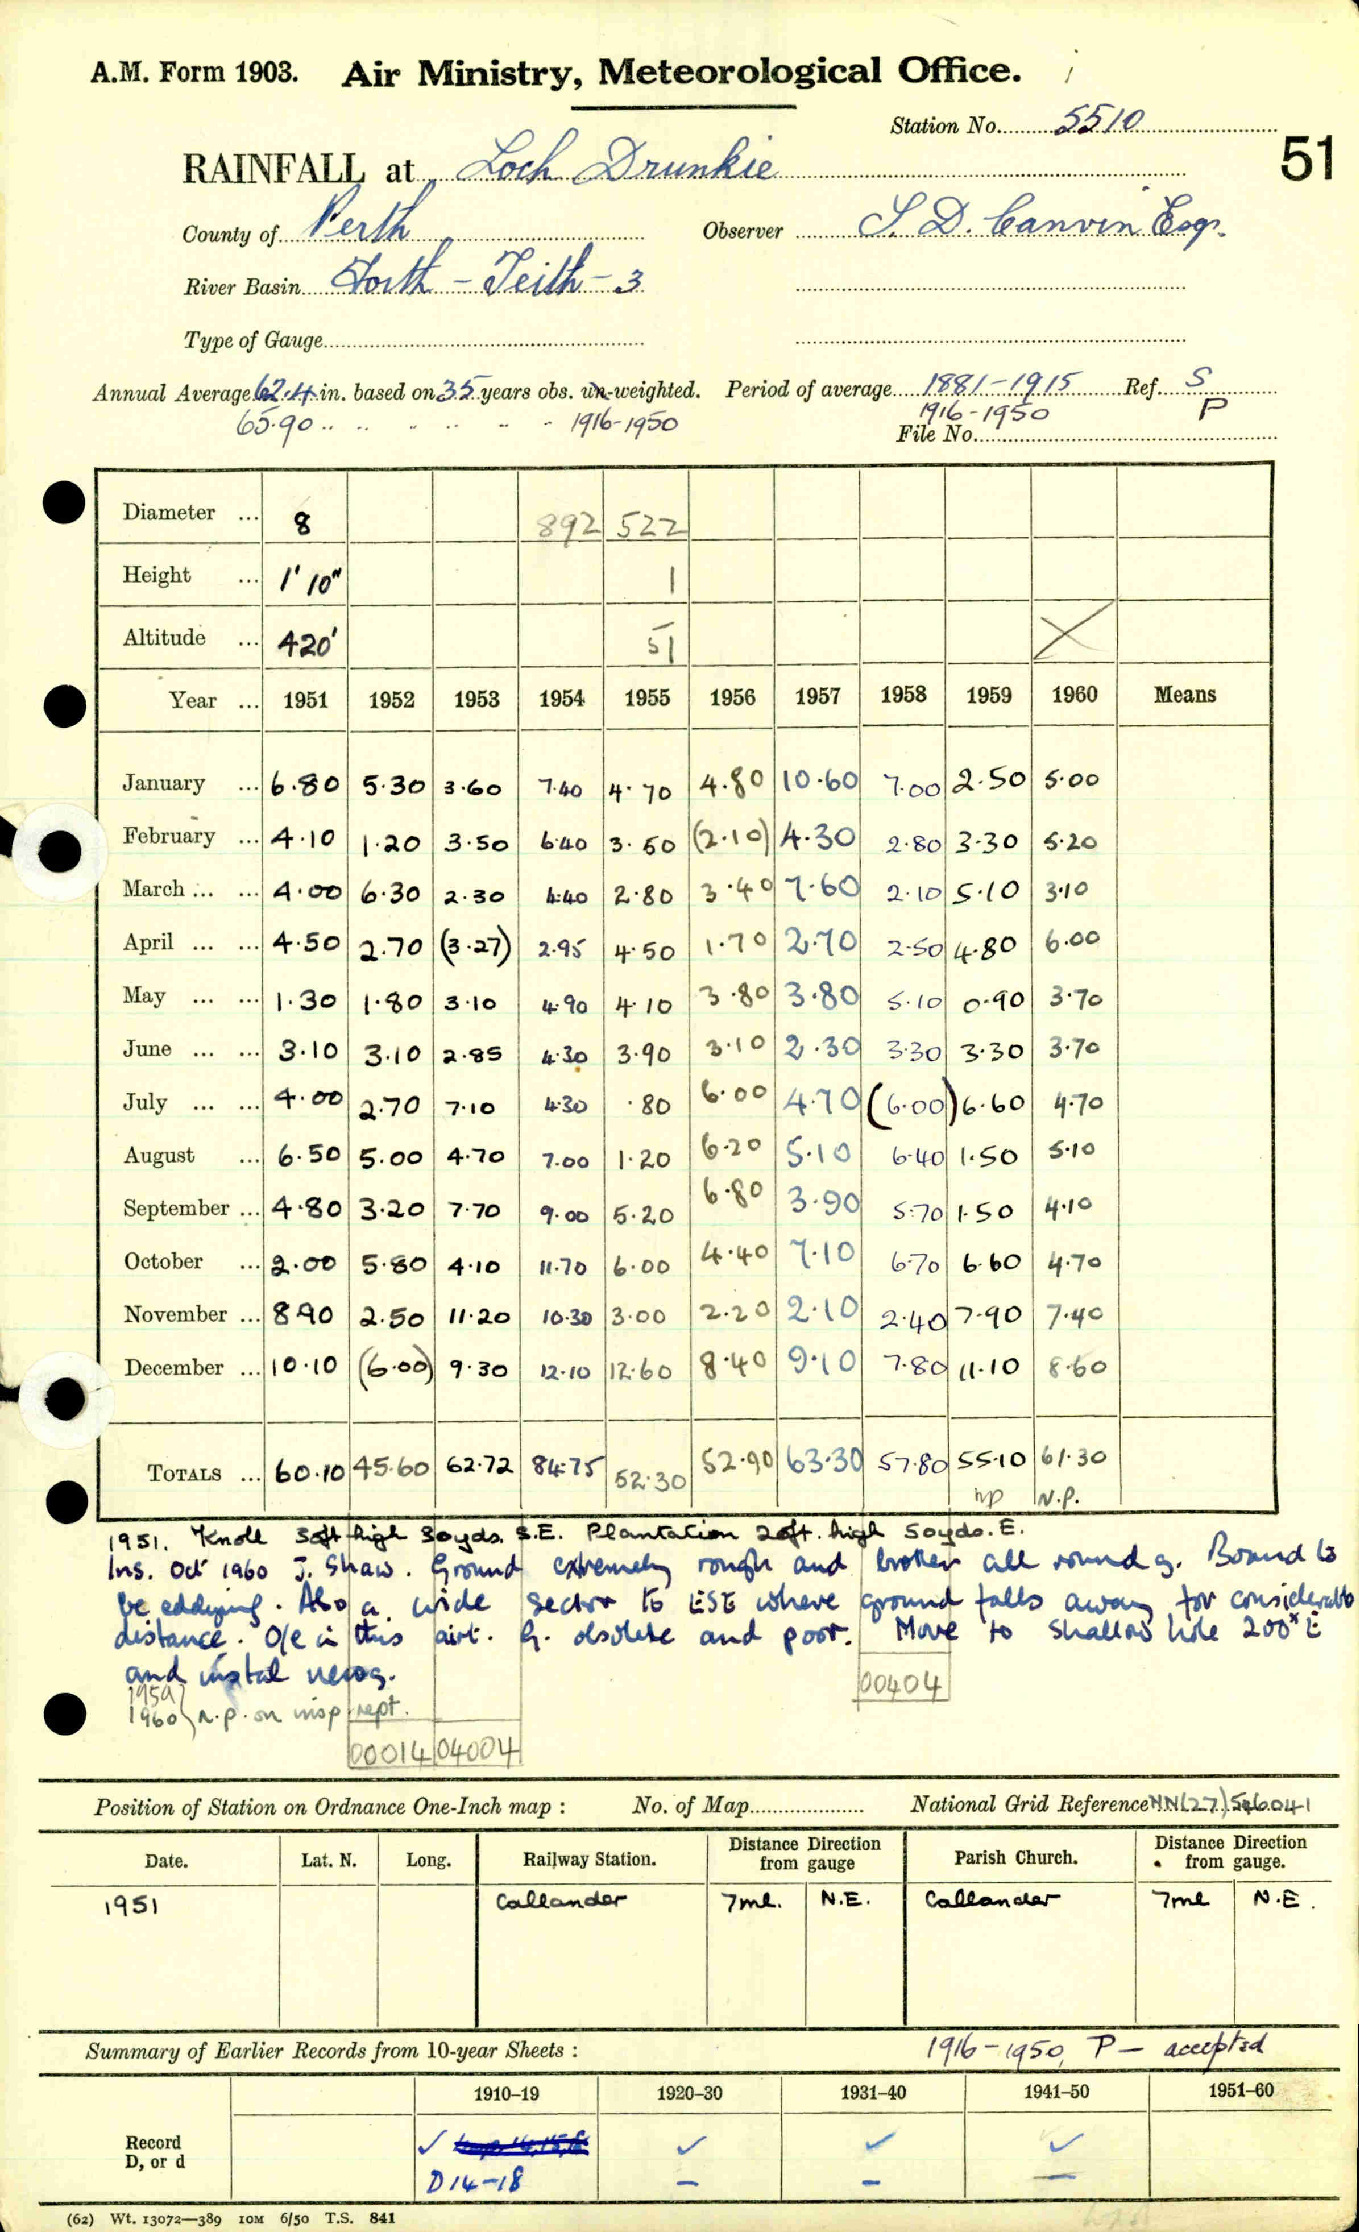 A.M. Form 1903. Air Ministry, Meteorological Office.
Station No. 5510
51
RAINFALL at Loch Drunkie
County of Perth Observer S. D. Canvin Esqr.
River Basin Forth - Teith - 3
Type of Gauge
Annual Average 62.4 in. based on 35 years obs. un-weighted. Period of average 1881-1915 Ref. S
65.90 .. .. .. .. .. .. 1916-1950 1916-1950 P
File No.
Diameter ... 8 892 522
Height ... 1' 10" 1
Altitude ... 420' 51
Year ... 1951 1952 1953 1954 1955 1956 1957 1958 1959 1960 Means
January ... 6.80 5.30 3.60 7.40 4.70 4.80 10.60 7.00 2.50 5.00
February ... 4.10 1.20 3.50 6.40 3.50 (2.10) 4.30 2.80 3.30 5.20
March ... ... 4.00 6.30 2.30 4.40 2.80 3.40 7.60 2.10 5.10 3.10
April ... ... 4.50 2.70 (3.27) 2.95 4.50 1.70 2.70 2.50 4.80 6.00
May ... ... 1.30 1.80 3.10 4.90 4.10 3.80 3.80 5.10 0.90 3.70
June ... ... 3.10 3.10 2.85 4.30 3.90 3.10 2.30 3.30 3.30 3.70
July ... ... 4.00 2.70 7.10 4.30 .80 6.00 4.70 (6.00) 6.60 4.70
August ... 6.50 5.00 4.70 7.00 1.20 6.20 5.10 6.40 1.50 5.10
September ... 4.80 3.20 7.70 9.00 5.20 6.80 3.90 5.70 1.50 4.10
October ... 2.00 5.80 4.10 11.70 6.00 4.40 7.10 6.70 6.60 4.70
November ... 8.90 2.50 11.20 10.30 3.00 2.20 2.10 2.40 7.90 7.40
December ... 10.10 (6.00) 9.30 12.10 12.60 8.40 9.10 7.80 11.10 8.60
TOTALS ... 60.10 45.60 62.72 84.75 52.30 52.90 63.30 57.80 55.10 61.30
np N.P.
1951. Knoll 30ft high 30yds. S.E. Plantation 20ft. high 50yds. E.
Ins. Oct 1960 J. Shaw. Ground extremely rough and broken all round g. Bound to
be eddying. Also a wide sector to ESE where ground falls away for considerable
distance. O/e in this airt. G. obsolete and poor. Move to shallow hole 200x E
and instal new g.
00404
1959
1960 } n.p. on insp rept.
00014 04004
Position of Station on Ordnance One-Inch map : No. of Map National Grid Reference NN(27)546041
Date. Lat. N. Long. Railway Station. Distance from gauge Direction Parish Church. Distance from gauge. Direction
1951 Callander 7ml. N.E. Callander 7ml N.E.
Summary of Earlier Records from 10-year Sheets : 1916-1950, P — accepted
1910–19 1920–30 1931–40 1941–50 1951–60
Record ✓ ✓ ✓ ✓
D, or d D14-18 – – –
(62) Wt. 13072—389 10M 6/50 T.S. 841